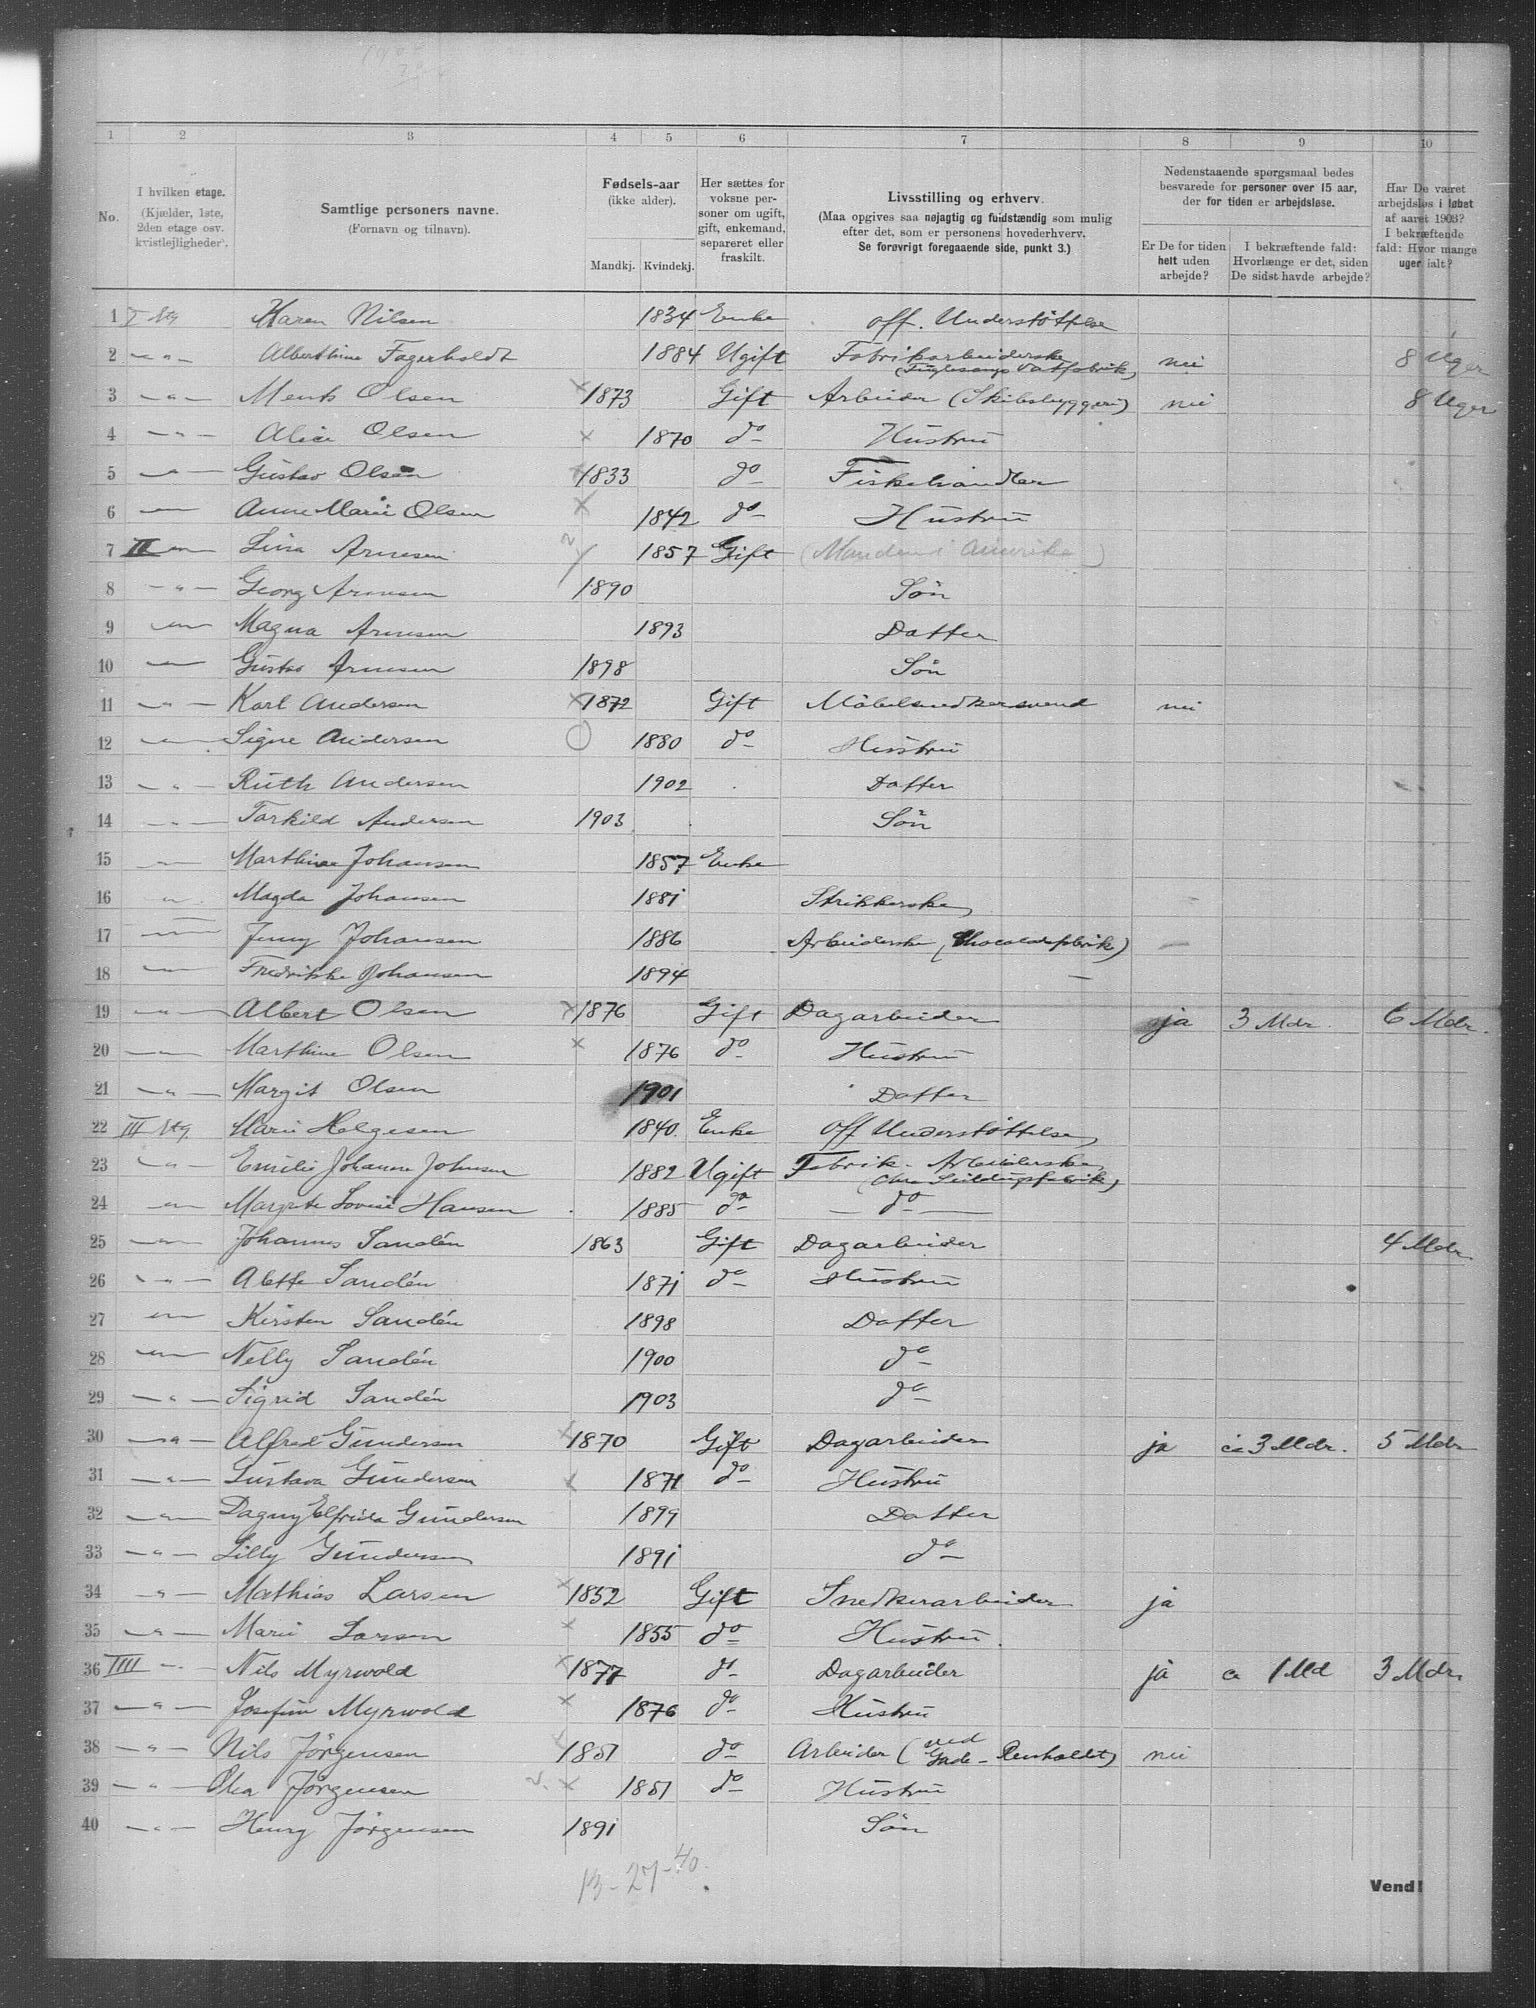 1 2 3 4 5 6 7 8 9 10
No.
I hvilken etage. (Kjælder, 1ste, 2den etage osv. kvistlejligheder).
Samtlige personers navne. (Fornavn og tilnavn).
Fødsels-aar (ikke alder).
Mandkj. Kvindekj.
Her sættes for voksne personer om ugift, gift, enkemand, separeret eller fraskilt.
Livsstilling og erhverv.
(Maa opgives saa nøjagtig og fuldstændig som mulig efter det, som er personens hovederhverv.
Se forøvrigt foregaaende side, punkt 3.)
Nedenstaaende spørgsmaal bedes besvarede for personer over 15 aar, der for tiden er arbejdsløse.
Er De for tiden helt uden arbejde?
I bekræftende fald: Hvorlænge er det, siden De sidst havde arbejde?
Har De været arbejdsløs i løbet af aaret 1903? I bekræftende fald: Hvor mange uger ialt?
1 I Etg Karen Nilsen 1834 Enke off. Understöttelse
2 —"— Alberthine Fagerholdt 1884 Ugift Fabrikarbeiderske nei 8 Uger
3 —"— Olsen 1873 Gift Arbeider (Skibsbyggeri) nei 8 Uger
4 —"— Alice Olsen 1870 do Hustru
5 —"— Gustav Olsen 1833 do Fiskehandler
6 —"— Anne Marie Olsen 1842 do Hustru
7 II —"— Lina Arnesen 1857 Gift (Manden i Amerika)
8 —"— Georg Arnesen 1890 Sön
9 —"— Magna Arnesen 1893 Datter
10 —"— Gustav Arnesen 1898 Sön
11 —"— Karl Andersen 1872 Gift Möbelsnedkersvend nei
12 —"— Signe Andersen 1880 do Hustru
13 —"— Ruth Andersen 1902 Datter
14 —"— Torkild Andersen 1903 Sön
15 —"— Marthine Johansen 1857 Enke
16 —"— Magda Johansen 1881 Strikkerske
17 —"— Jenny Johansen 1886 Arbeiderske (Chocoladefabrik) —
18 —"— Fredrikke Johansen 1894 —
19 —"— Albert Olsen 1876 Gift Dagarbeider ja 3 Mdr. 6 Mdr.
20 —"— Marthine Olsen 1876 do Hustru
21 —"— Margit Olsen 1901 Datter
22 III Etg. Marie Helgesen 1840 Enke off Understöttelse
23 —"— Emilie Johanne Johnsen 1882 Ugift Fabrik-Arbeiderske
24 —"— Margrete Lovise Hansen 1885 do — do —
25 —"— Johannes Sandén 1863 Gift Dagarbeider 4 Mdr.
26 —"— Alette Sandén 1871 do Hustru
27 —"— Kirsten Sandén 1898 Datter
28 —"— Nelly Sandén 1900 do
29 —"— Sigrid Sandén 1903 do
30 —"— Alfred Gundersen 1870 Gift Dagarbeider ja ca 3 Mdr. 5 Mdr
31 —"— Gustava Gundersen 1871 do Hustru
32 —"— Dagny Elfrida Gundersen 1899 Datter
33 —"— Lilly Gundersen 1891 do
34 —"— Mathias Larsen 1852 Gift Snedkerarbeider ja
35 —"— Marie Larsen 1855 do Hustru.
36 IIII —"— Nils Myrwold 1877 do Dagarbeider ja ca 1 Md 3 Mdr.
37 —"— Josefine Myrwold 1876 do Hustru
38 —"— Nils Jörgensen 1851 do Arbeider (ved Gade-Renholdt) nei
39 —"— Jörgensen 1851 do Hustru
40 —"— Henry Jörgensen 1891 Sön
13-27-40.
Vend!